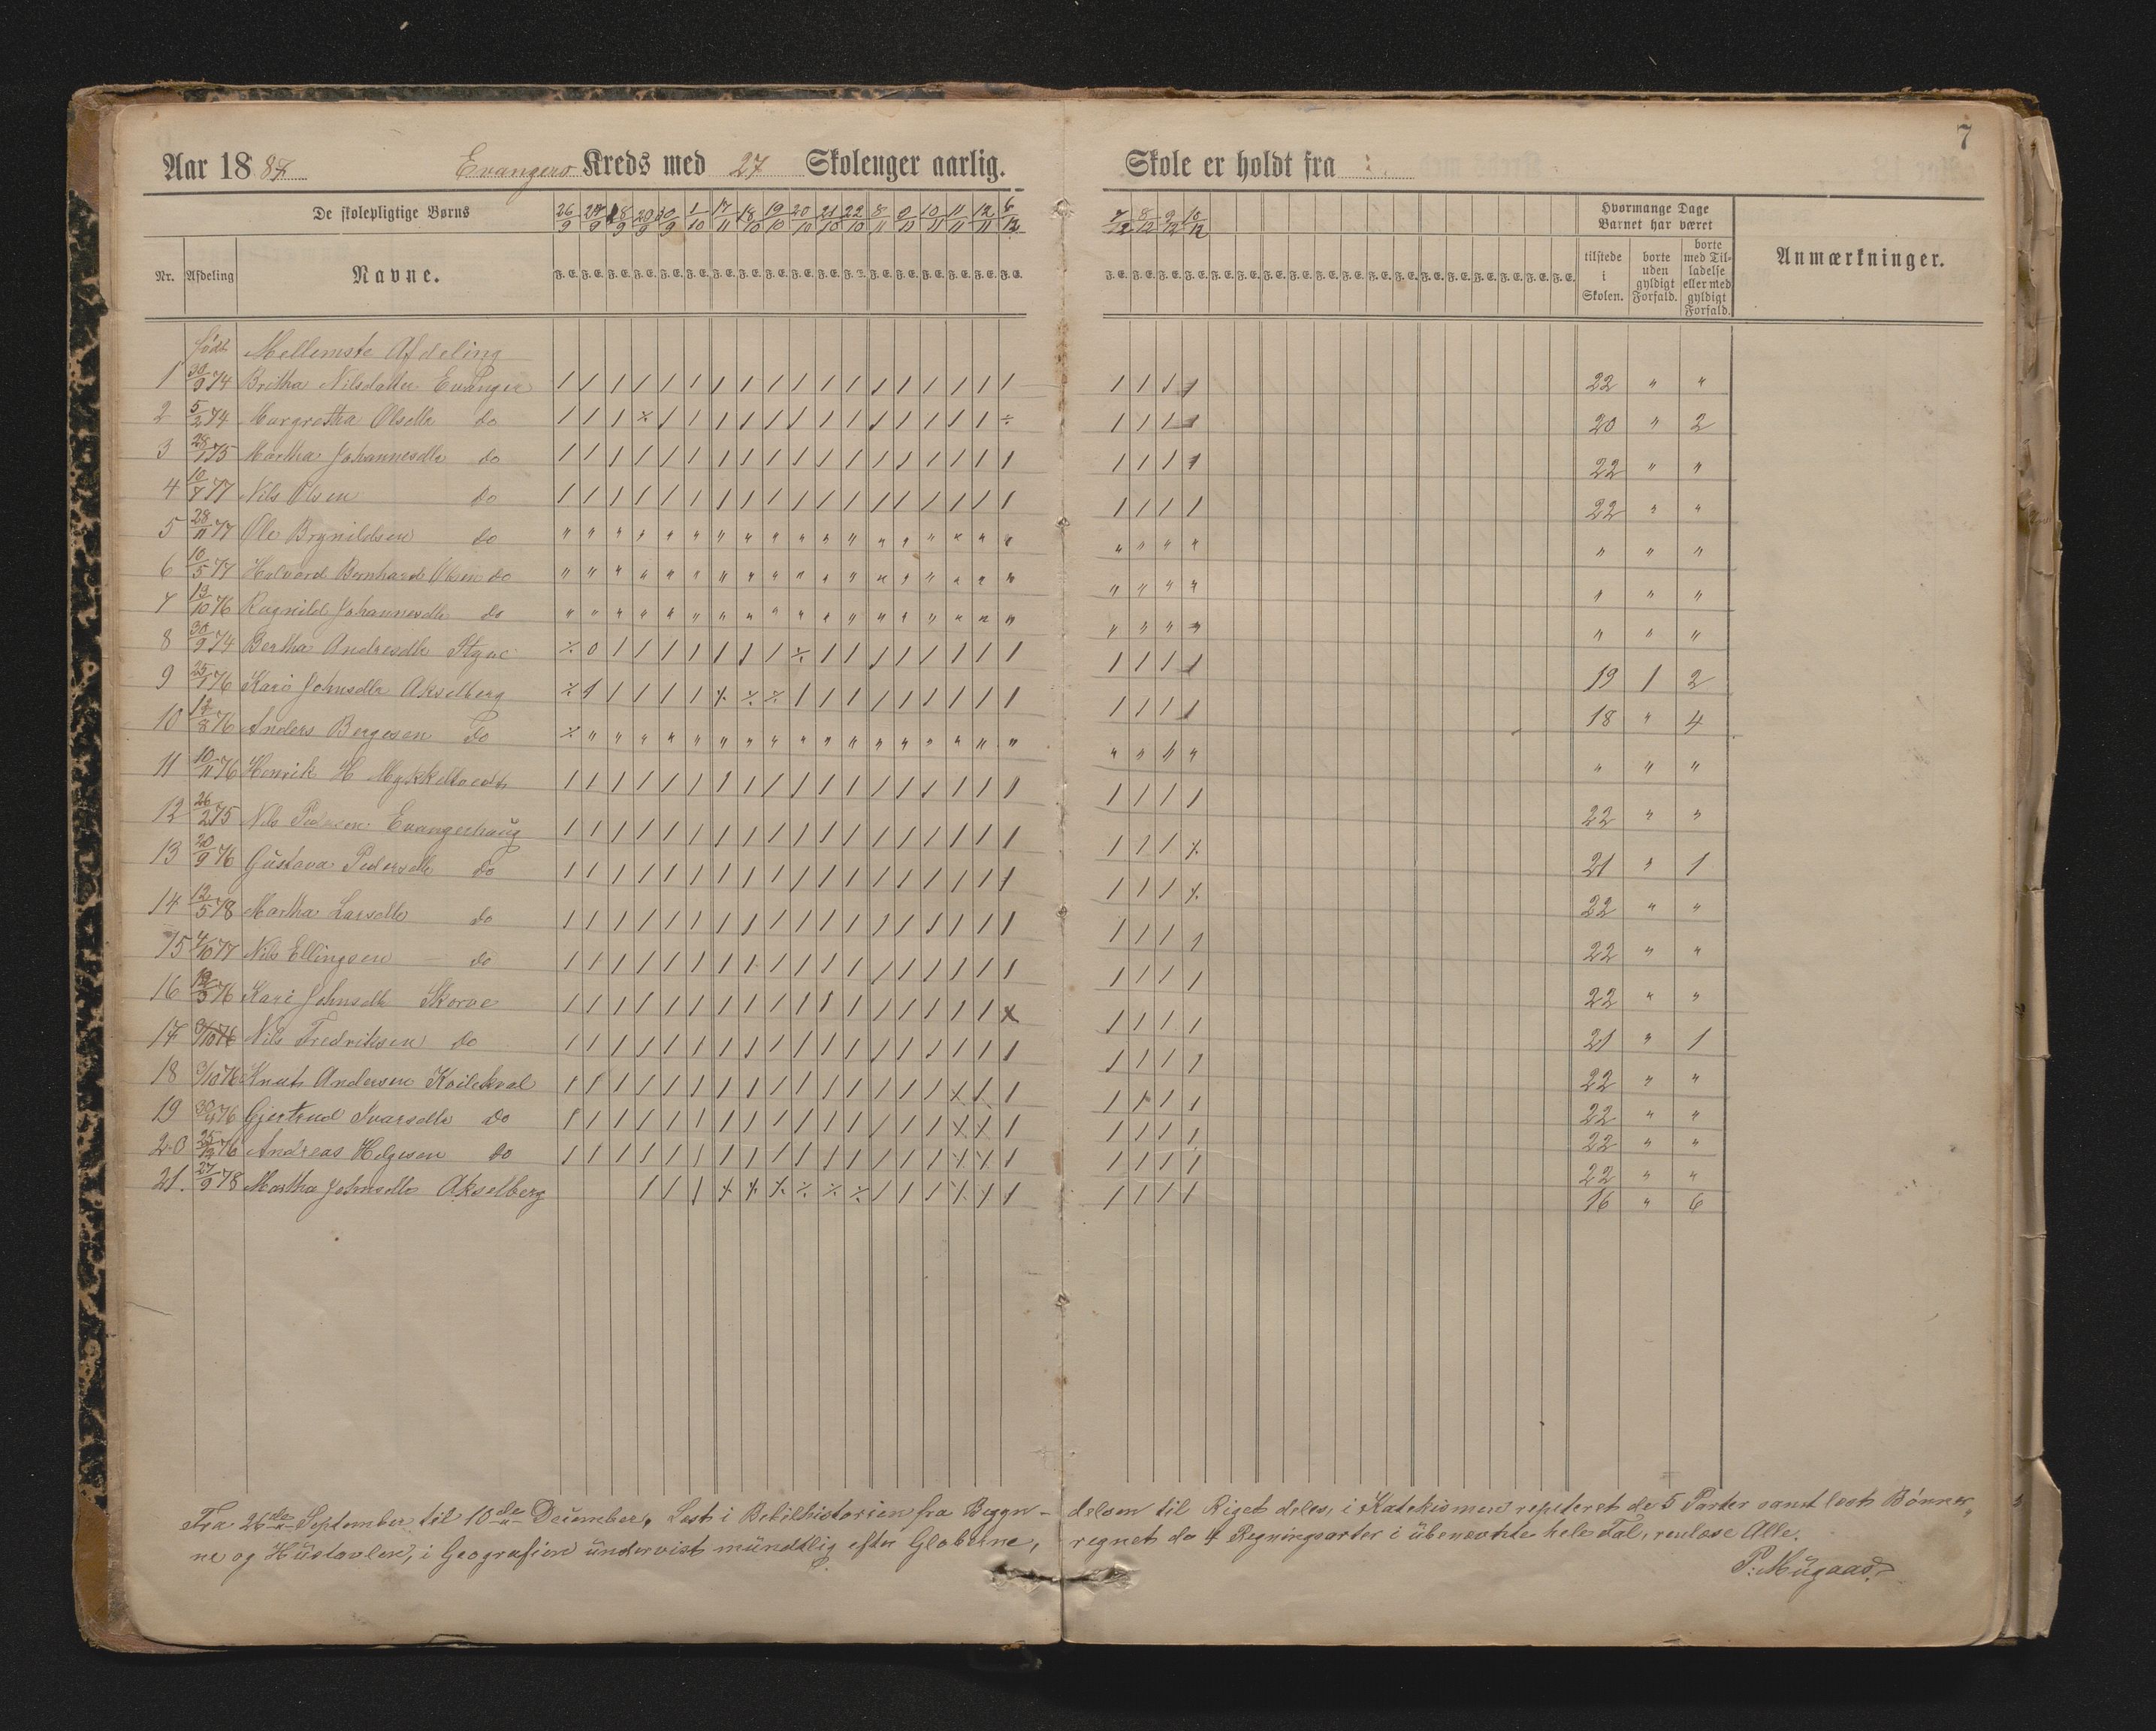 7
Aar 18 87 Evangers Kreds med 27 Skolenger aarlig. Skole er holdt fra
De skolepligtige Børns 26/9 27/9 28/9 29/9 30/9 1/10 17/11 18/10 19/10 20/10 21/10 22/10 8/11 9/11 10/11 11/11 12/11 6/12 7/12 8/12 9/12 10/12 Hvormange Dage Barnet har været
Nr. Afdeling Navne. F. E. tilstede i Skolen. borte uden gyldigt Forfald. borte med Tilladelse eller med gyldigt Forfald. Anmærkninger.
født Mellemste Afdeling
1 30/9 74 Britha Nilsdatter Evanger 22 " "
2 5/2 74 Margretha Olsdtr do 20 " 2
3 28/1 75 Martha Johannesdtr do 22 " "
4 10/7 77 Nils Olsen do 22 " "
5 28/11 77 Ole Brynildsen do " " "
6 10/5 77 Halvard Bernhard Olsen do " " "
7 13/10 76 Ragnild Johannesdtr do " " "
8 30/9 74 Bertha Andersdtr 19 1 2
9 25/1 76 Kari Johnsdtr Akselberg 18 " 4
10 76 Anders Bergesen do " " "
11 10/11 76 Henrik H 22 " "
12 26/2 75 Nils Pedersen Evangerhaug 21 " 1
13 20/9 76 Gustava Pedersdtr do 22 " "
14 12/5 78 Martha Larsdtr do 22 " "
15 4/10 77 Nils Ellingsen do 22 " "
16 76 Kari Johnsdtr Skorve 21 " 1
17 76 Nils Fredriksen do 22 " "
18 3/10 76 Knut Andersen 22 " "
19 76 Gjertrud Ivarsdtr do 22 " "
20 25/12 76 Andreas Helgesen do 22 " "
21. 27/9 78 Martha Johnsdtr Akselberg 16 " 6
Fra 26de September til 10de December. Lest i Bibilhistorien fra Begyn- delsen til Riget deles, i Katekismen repiteret de 5 Parter samt lest Bønner,
ne og Hustavlen, i Geografien undervist mundtlig efter Globerne, regnet de 4 Regningsarter i übenævnte hele Tal, renlæse Alle.
P. Mügaas